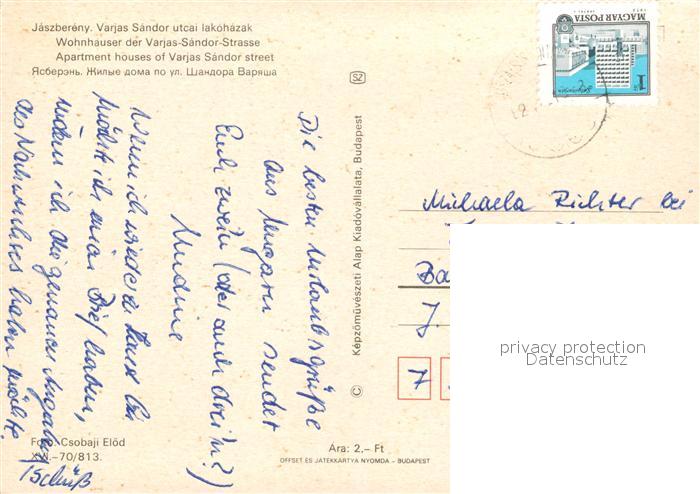 Jászberény. Varjas Sándor utcai lakóházak
Wohnhäuser der Varjas-Sándor-Strasse
Apartment houses of Varjas Sándor street
Ясберэнь. Жилые дома по ул. Шандора Варяша
SZ
MAGYAR POSTA
1 Ft
Die besten Urlaubsgrüße
aus Ungarn sendet
Euch zwein (oder auch drei'n?)
Wenn ich wieder zu Haus bin
möcht ich einen Brief haben,
indem ich die genauen Angaben
des Nachwuchses haben möchte.
Tschüß
Michaela Richter bei
Ba
J
7
© Képzőművészeti Alap Kiadóvállalata, Budapest
privacy protection
Datenschutz
Foto: Csobaji Előd
XVI.-70/813.
Ára: 2,- Ft
OFFSET ÉS JÁTÉKKÁRTYA NYOMDA - BUDAPEST